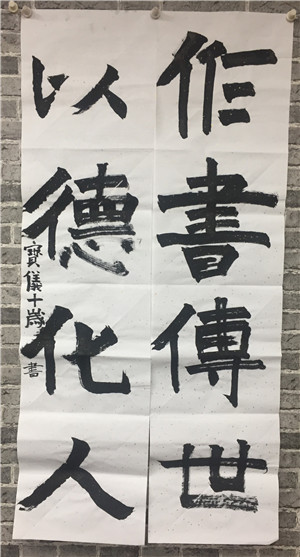 作書傳世
以德化人
寶儀十歲書